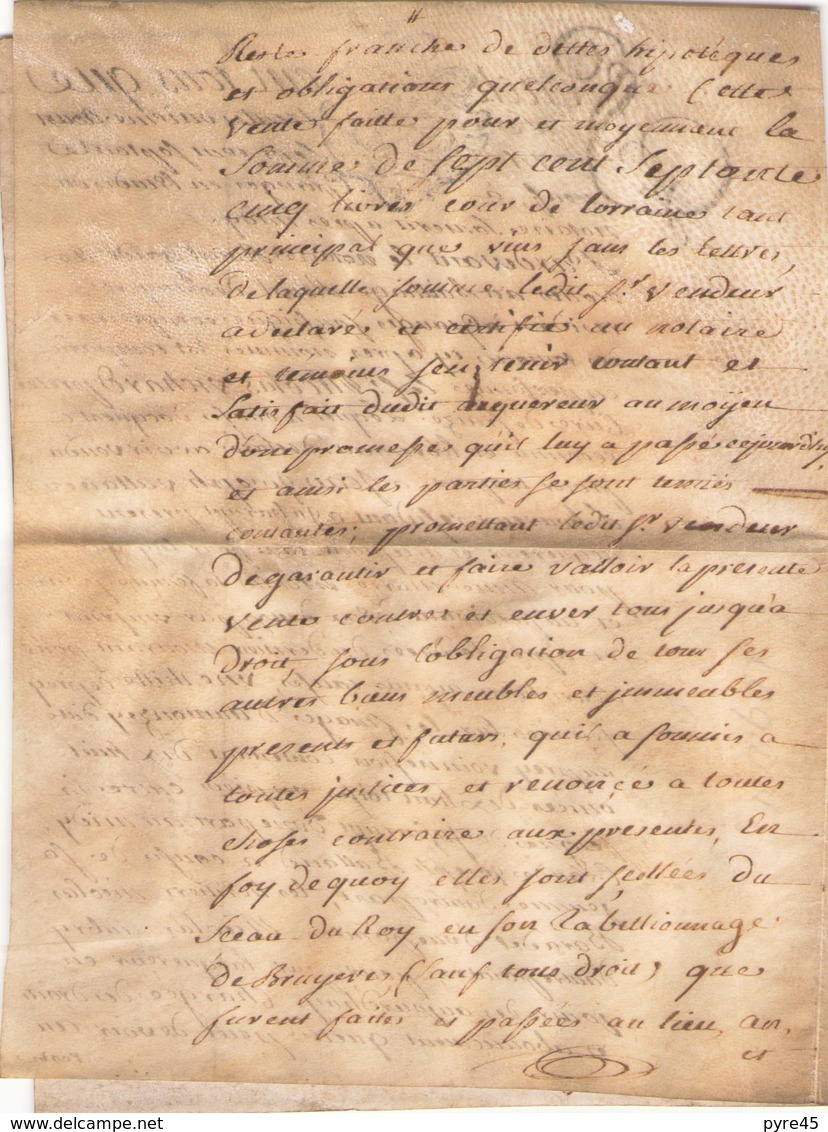 Reste franche de dettes hipoteques
et obligations quelconque Cette
vente faitte pour et moyennant la
Somme de Sept cent Septante
Cinq livres cour de lorraine tant
principal que vins sans les lettres,
de laquelle somme ledit Sr. vendeur
a declaré et certifié au notaire
et temoins sen tenir contant et
Satisfait dudit acquereur au moÿen
dun promesse quil luy a passé cejourdhuy
et ainsi les parties se sont tenües
contantes, promettant ledit Sr. vendeur
De garantir et faire valloir la presente
vente contre et enver tous jusqu'a
Droit sous l'obligation de tous ses
autres biens meubles et immeubles
presents et futurs, quil a soumis a
toutes justices et renonçé a toutes
choses contraire aux présentes, En
foy de quoy elles sont scellées du
Sceau du Roy en son Tabellionnage
de Bruyeres (sauf tous droit) que
furent faites et passées au lieu, an,
et
pyre45